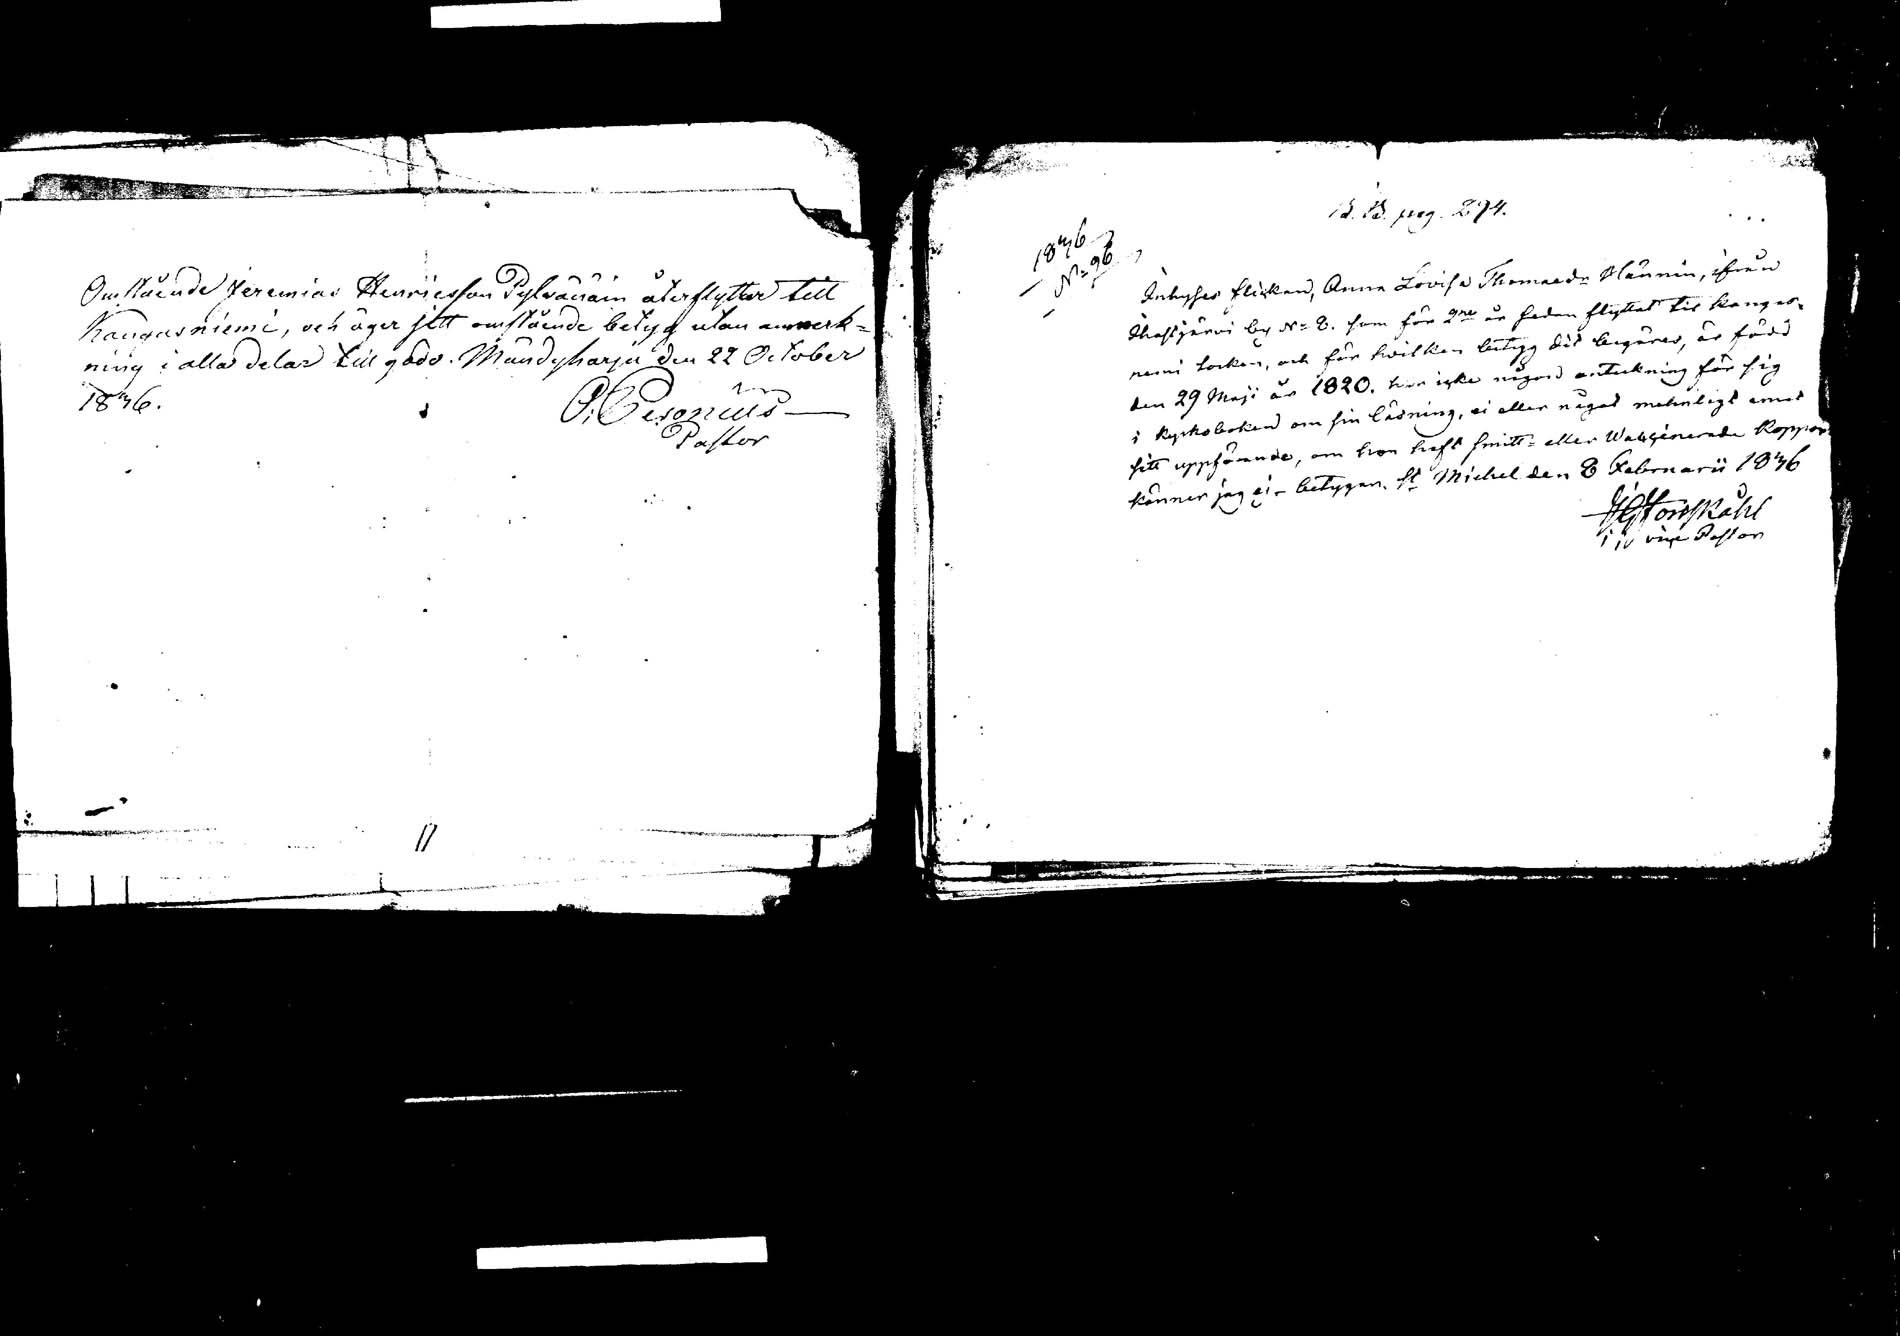 Omstående Jeremias Henricsson Pylvänäin återflyttar till
Kangasniemi, och äger sitt omstående betyg utan anmerk=
ning i alla delar till godo. Mändyharju den 22 October
1846.
Pastor
B. B. pag. 294.
1846
N= 96
Inhyses flickan, Anna Lovisa Thomaed= Männin, ifrån
by N= 8. som för 2ne år sedan flyttat till Kangas=
nemi Socken, och för hvilken betyg dit begäres, är född
den 29 Maji år 1820. har icke någon anteckning för sig
i Kyrkoboken om sin läsning, ei eller något mehnligt emot
sitt uppförande, om hon haft smitt= eller Waccinerade Koppor
känner jag ei= betygar. St Michel den 8 Februarii 1846
vice Pastor